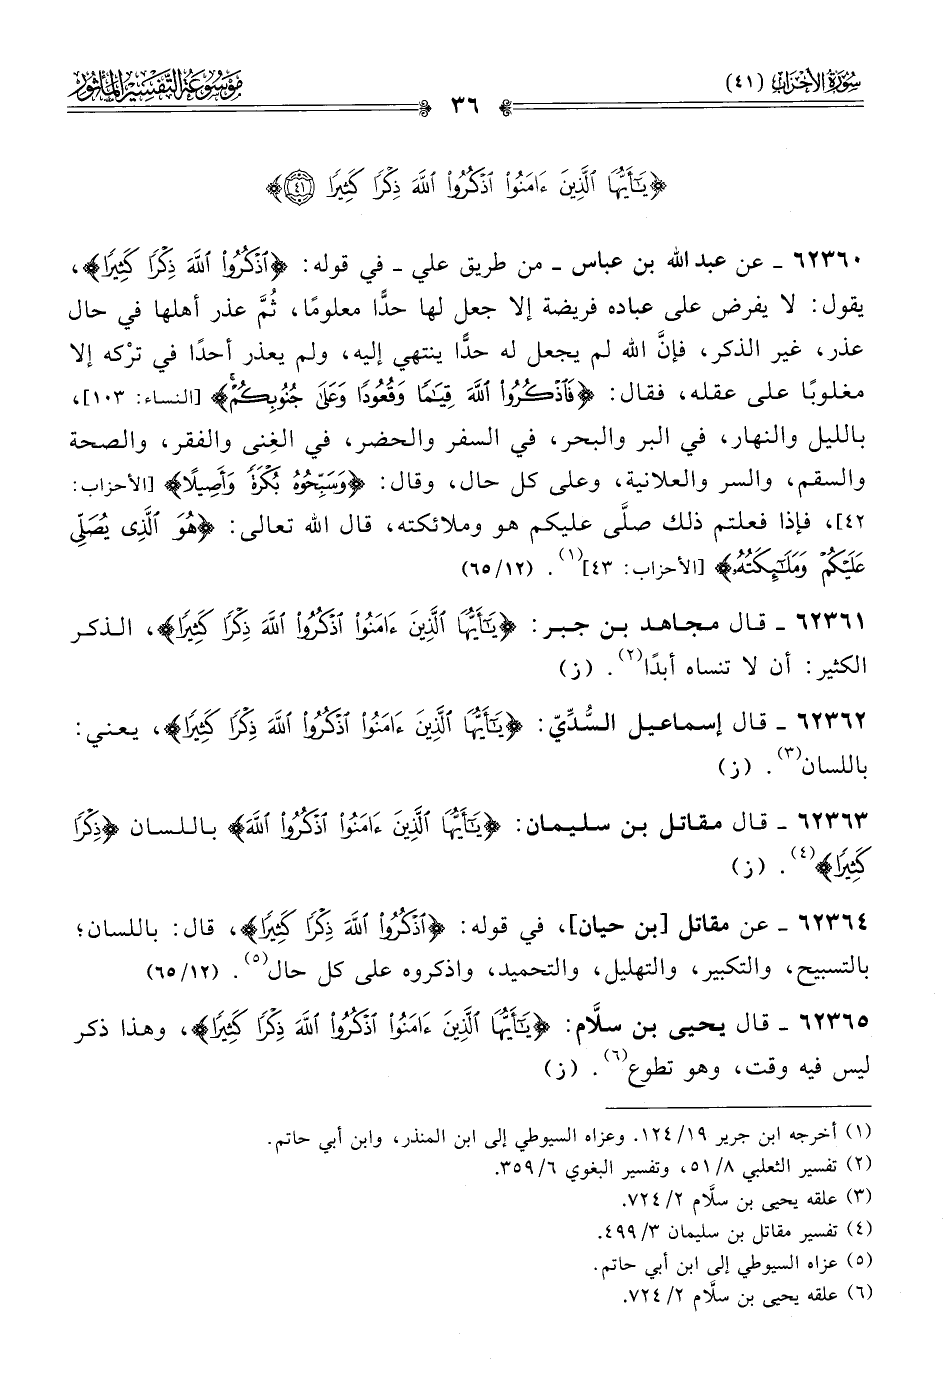 سورة الأحزاب (٤١)
موسوعة التفسير المأثور
٣٦
﴿يَٰٓأَيُّهَا ٱلَّذِينَ ءَامَنُوا۟ ٱذْكُرُوا۟ ٱللَّهَ ذِكْرًا كَثِيرًا ٤١﴾
٦٢٣٦٠ ـ عن عبد الله بن عباس ـ من طريق علي ـ في قوله: ﴿ٱذْكُرُوا۟ ٱللَّهَ ذِكْرًا كَثِيرًا﴾،
يقول: لا يفرض على عباده فريضة إلا جعل لها حدًّا معلومًا، ثُمَّ عذر أهلها في حال
عذر، غير الذكر، فإنَّ الله لم يجعل له حدًّا ينتهي إليه، ولم يعذر أحدًا في تركه إلا
مغلوبًا على عقله، فقال: ﴿فَٱذْكُرُوا۟ ٱللَّهَ قِيَٰمًا وَقُعُودًا وَعَلَىٰ جُنُوبِكُمْ﴾ [النساء: ١٠٣]،
بالليل والنهار، في البر والبحر، في السفر والحضر، في الغِنى والفقر، والصحة
والسقم، والسر والعلانية، وعلى كل حال، وقال: ﴿وَسَبِّحُوهُ بُكْرَةً وَأَصِيلًا﴾ [الأحزاب:
٤٢]، فإذا فعلتم ذلك صلَّى عليكم هو وملائكته، قال الله تعالى: ﴿هُوَ ٱلَّذِى يُصَلِّى
عَلَيْكُمْ وَمَلَٰٓئِكَتُهُۥ﴾ [الأحزاب: ٤٣](١). (١٢/٦٥)
٦٢٣٦١ ـ قال مجاهد بن جبر: ﴿يَٰٓأَيُّهَا ٱلَّذِينَ ءَامَنُوا۟ ٱذْكُرُوا۟ ٱللَّهَ ذِكْرًا كَثِيرًا﴾، الذكر
الكثير: أن لا تنساه أبدًا(٢). (ز)
٦٢٣٦٢ ـ قال إسماعيل السُّدِّيّ: ﴿يَٰٓأَيُّهَا ٱلَّذِينَ ءَامَنُوا۟ ٱذْكُرُوا۟ ٱللَّهَ ذِكْرًا كَثِيرًا﴾، يعني:
باللسان(٣). (ز)
٦٢٣٦٣ ـ قال مقاتل بن سليمان: ﴿يَٰٓأَيُّهَا ٱلَّذِينَ ءَامَنُوا۟ ٱذْكُرُوا۟ ٱللَّهَ﴾ باللسان ﴿ذِكْرًا
كَثِيرًا﴾(٤). (ز)
٦٢٣٦٤ ـ عن مقاتل [بن حيان]، في قوله: ﴿ٱذْكُرُوا۟ ٱللَّهَ ذِكْرًا كَثِيرًا﴾، قال: باللسان؛
بالتسبيح، والتكبير، والتهليل، والتحميد، واذكروه على كل حال(٥). (١٢/٦٥)
٦٢٣٦٥ ـ قال يحيى بن سلَّام: ﴿يَٰٓأَيُّهَا ٱلَّذِينَ ءَامَنُوا۟ ٱذْكُرُوا۟ ٱللَّهَ ذِكْرًا كَثِيرًا﴾، وهذا ذكر
ليس فيه وقت، وهو تطوع(٦). (ز)
(١) أخرجه ابن جرير ١٩/١٢٤. وعزاه السيوطي إلى ابن المنذر، وابن أبي حاتم.
(٢) تفسير الثعلبي ٨/٥١، وتفسير البغوي ٦/٣٥٩.
(٣) علقه يحيى بن سلَّام ٢/٧٢٤.
(٤) تفسير مقاتل بن سليمان ٣/٤٩٩.
(٥) عزاه السيوطي إلى ابن أبي حاتم.
(٦) علقه يحيى بن سلَّام ٢/٧٢٤.